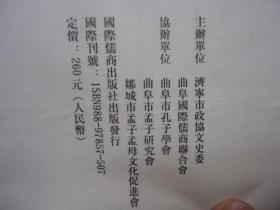 主辦單位　濟寧市政協文史委
曲阜國際儒商聯合會
協辦單位　曲阜市孔子學會
曲阜市孟子研究會
鄒城市孟子孟母文化促進會
國際儒商出版社出版發行
國際刊號：ISBN988-97857-507
定價：260元（人民幣）